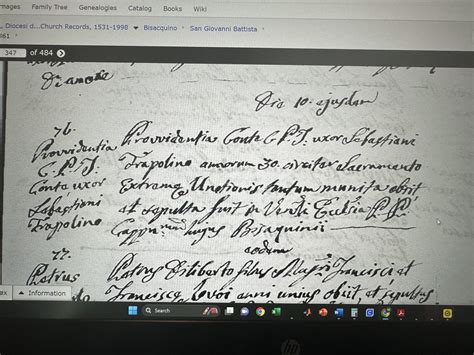 mages Family Tree Genealogies Catalog Books Wiki
, Diocesi d...Church Records, 1531-1998 Bisacquino San Giovanni Battista
861
347 of 484
Die 10. ejusdem
76.
Providentia
C. P. J.
Conta uxor
Sebastiani
Trapolino
Providentia Conta C. P. J. uxor Sebastiani
Trapolino annorum 30. circiter Sacramento
Extrema Unctionis tantum munita obiit
et sepulta fuit in Ecclesia P. P.
hujus Bisaquinii
eodem
77.
Petrus
Petrus Diliberto filius Francisci et
Francisca anni unius obiit, et sepultus
ax Information
Search